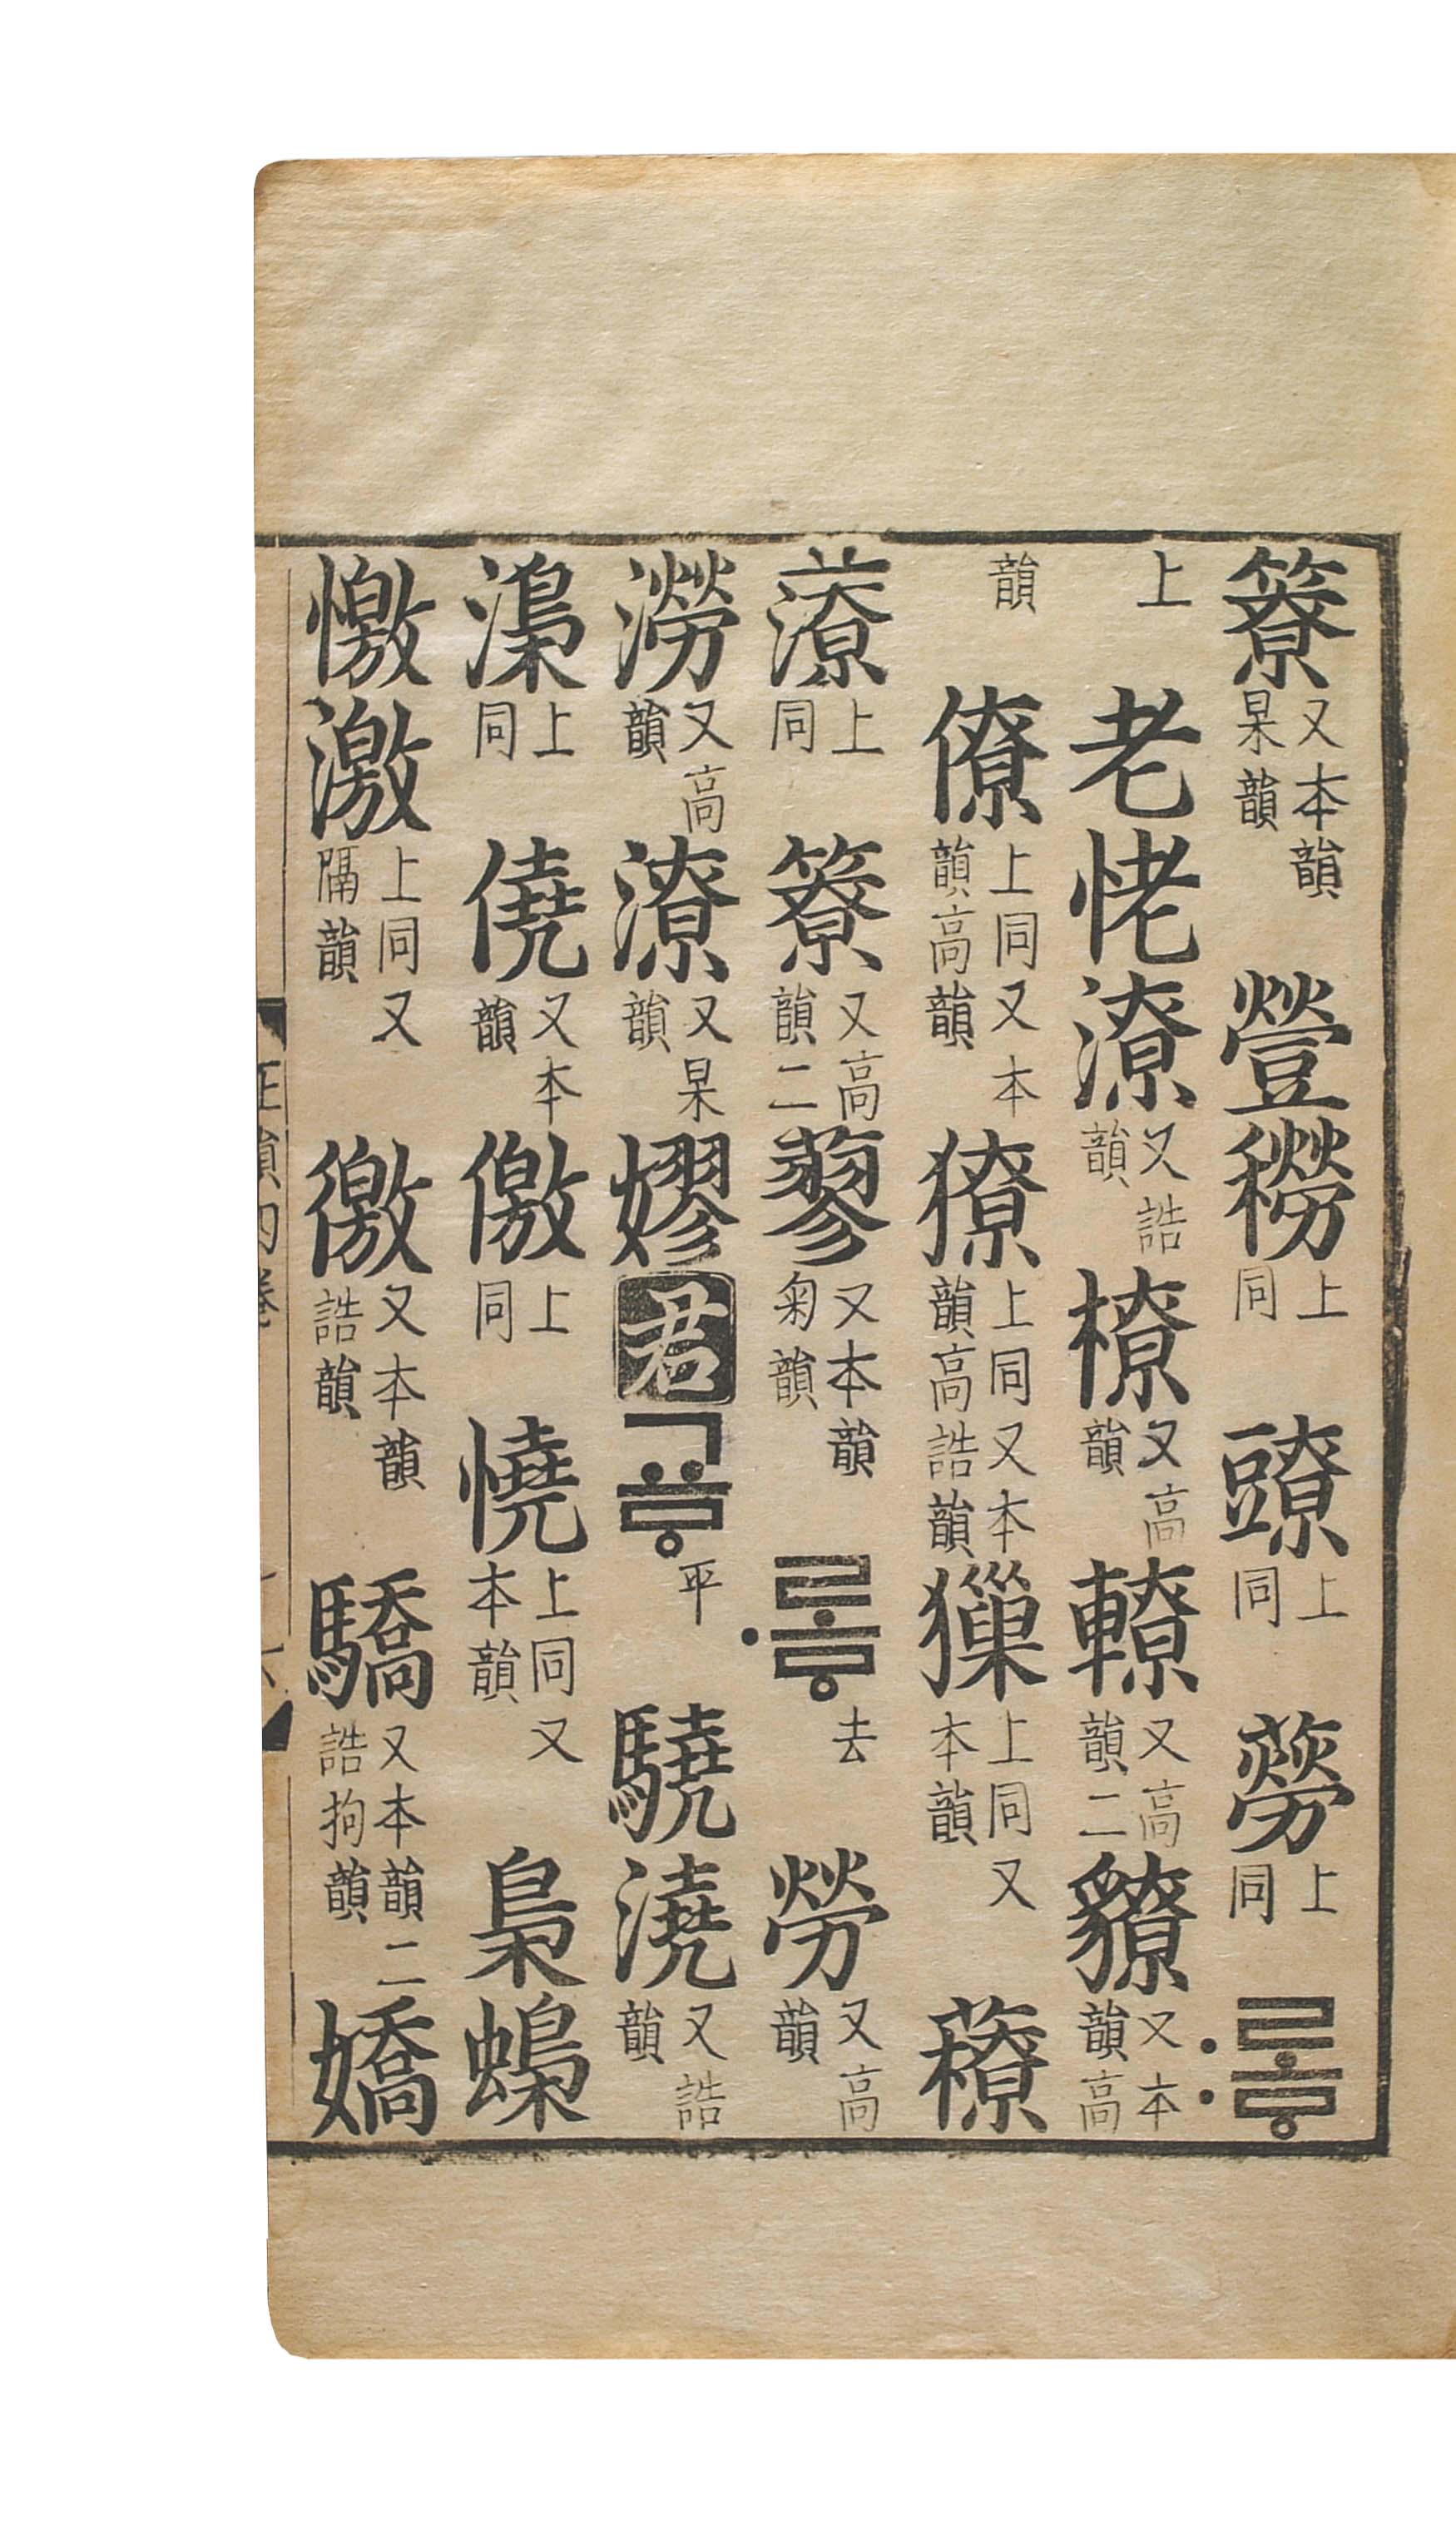 簝又本韻杲韻 𧯡𥢒上同 上同 䓣上同 :로ᇢ
上 老恅潦又誥韻 橑又高韻 轑又高韻二 又本韻高
韻 僚上同又本韻高韻 獠上同又本韻高誥韻 上同又本韻
上同 簝又高韻二 蓼又本韻菊韻 ·로ᇢ去 勞又高韻
澇又高韻 潦又杲韻 嫪 君 교ᇢ平 驍澆又誥韻
上同 僥又本韻 儌上同 憢上同又本韻 梟蟂
憿激上同又隔韻 徼又本韻誥韻 驕又本韻二誥拘韻 嬌